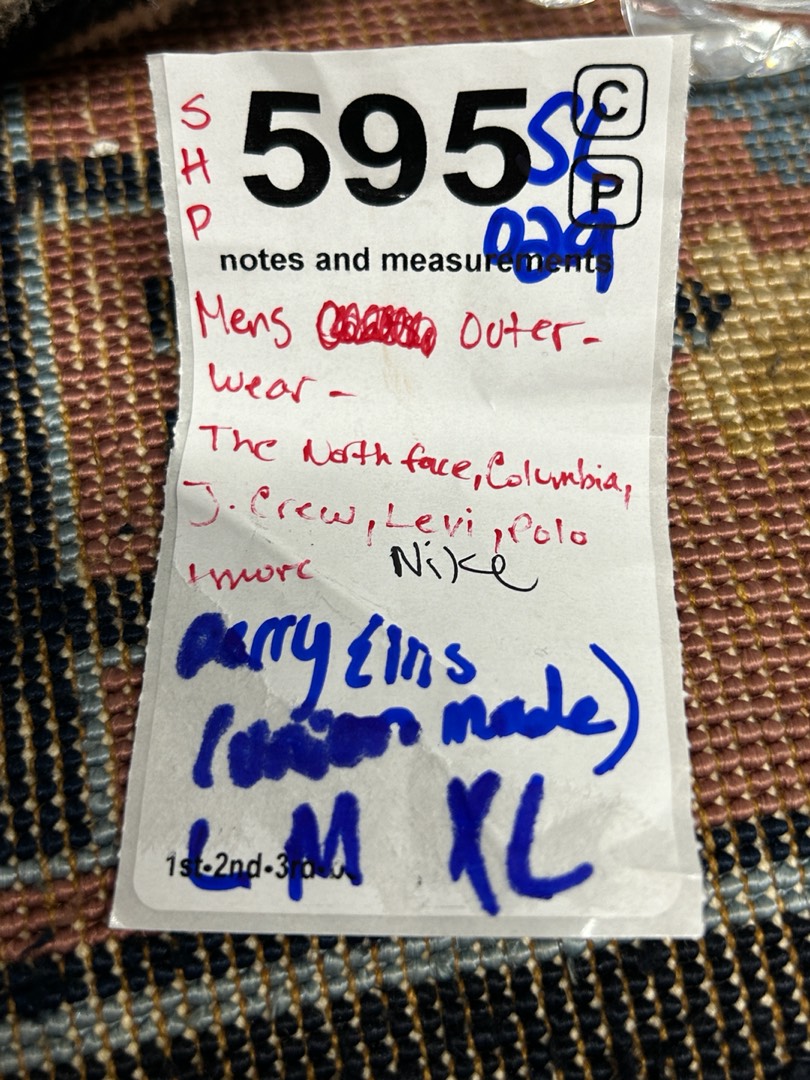 S
H
P
595
SL
029
C
P
notes and measurements
Mens Outer-
wear -
The North face, Columbia,
J. Crew, Levi, Polo
+more Nike
Perry Ellis
(union made)
L M XL
1st•2nd•3rd